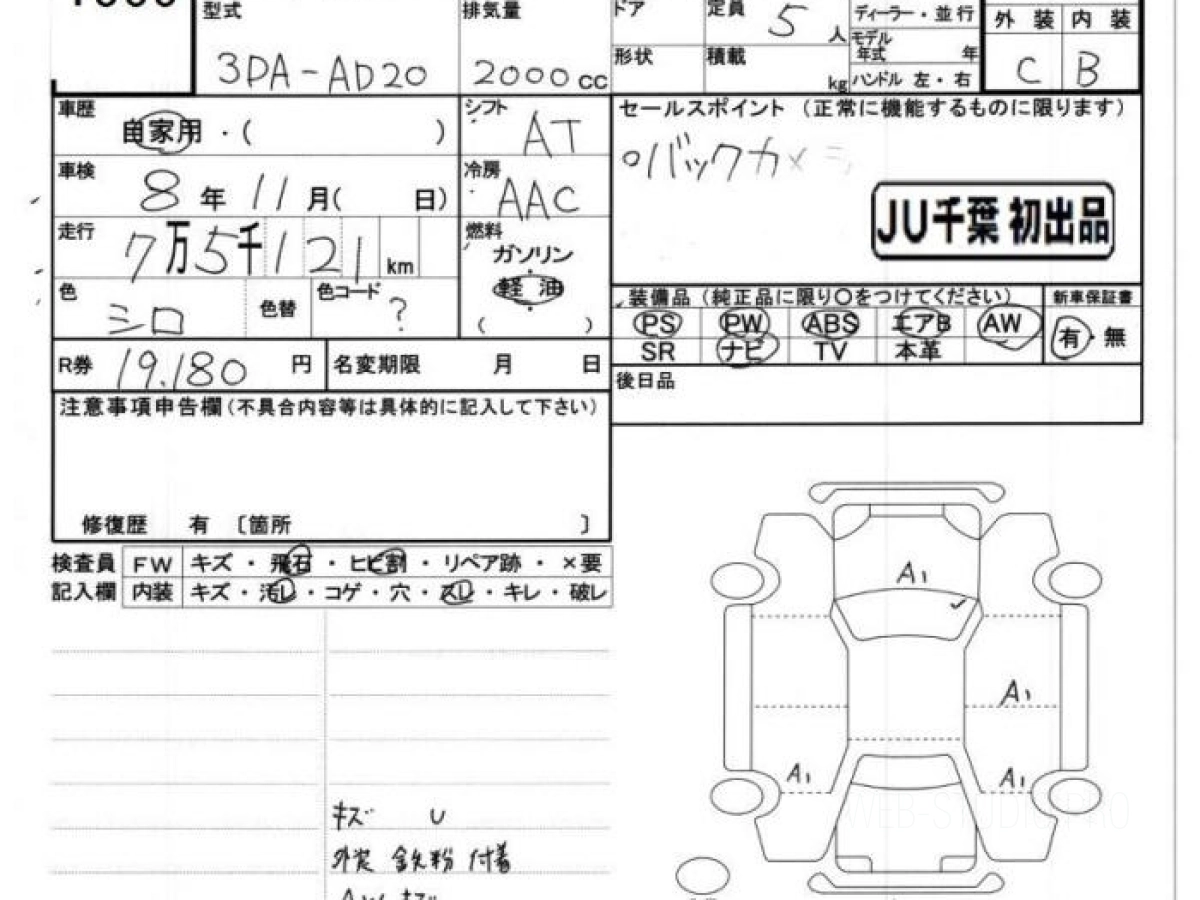 型式
排気量
ドア
定員 5 人
ディーラー・並行
外装 内装
3DA-AD20
2000cc
形状
積載 kg
モデル年式 年
ハンドル 左・右
C B
車歴
自家用・( )
シフト
AT
セールスポイント (正常に機能するものに限ります)
○バックカメラ
車検
8年 11月( 日)
冷房
AAC
JU千葉 初出品
走行
7万5千121km
燃料
ガソリン
軽油
( )
色
シロ
色替
色コード
?
装備品 (純正品に限り○をつけてください)
新車保証書
PS PW ABS エアB AW
有・無
SR ナビ TV 本革
R券 19,180 円
名変期限 月 日
後日品
注意事項申告欄(不具合内容等は具体的に記入して下さい)
修復歴 有 〔箇所 〕
検査員 FW キズ・飛石・ヒビ割・リペア跡・×要
記入欄 内装 キズ・汚レ・コゲ・穴・スレ・キレ・破レ
A1
A1
A1
A1
キズ U
外装 鉄粉 付着
AWキズ
WEB-STUDIO.PRO